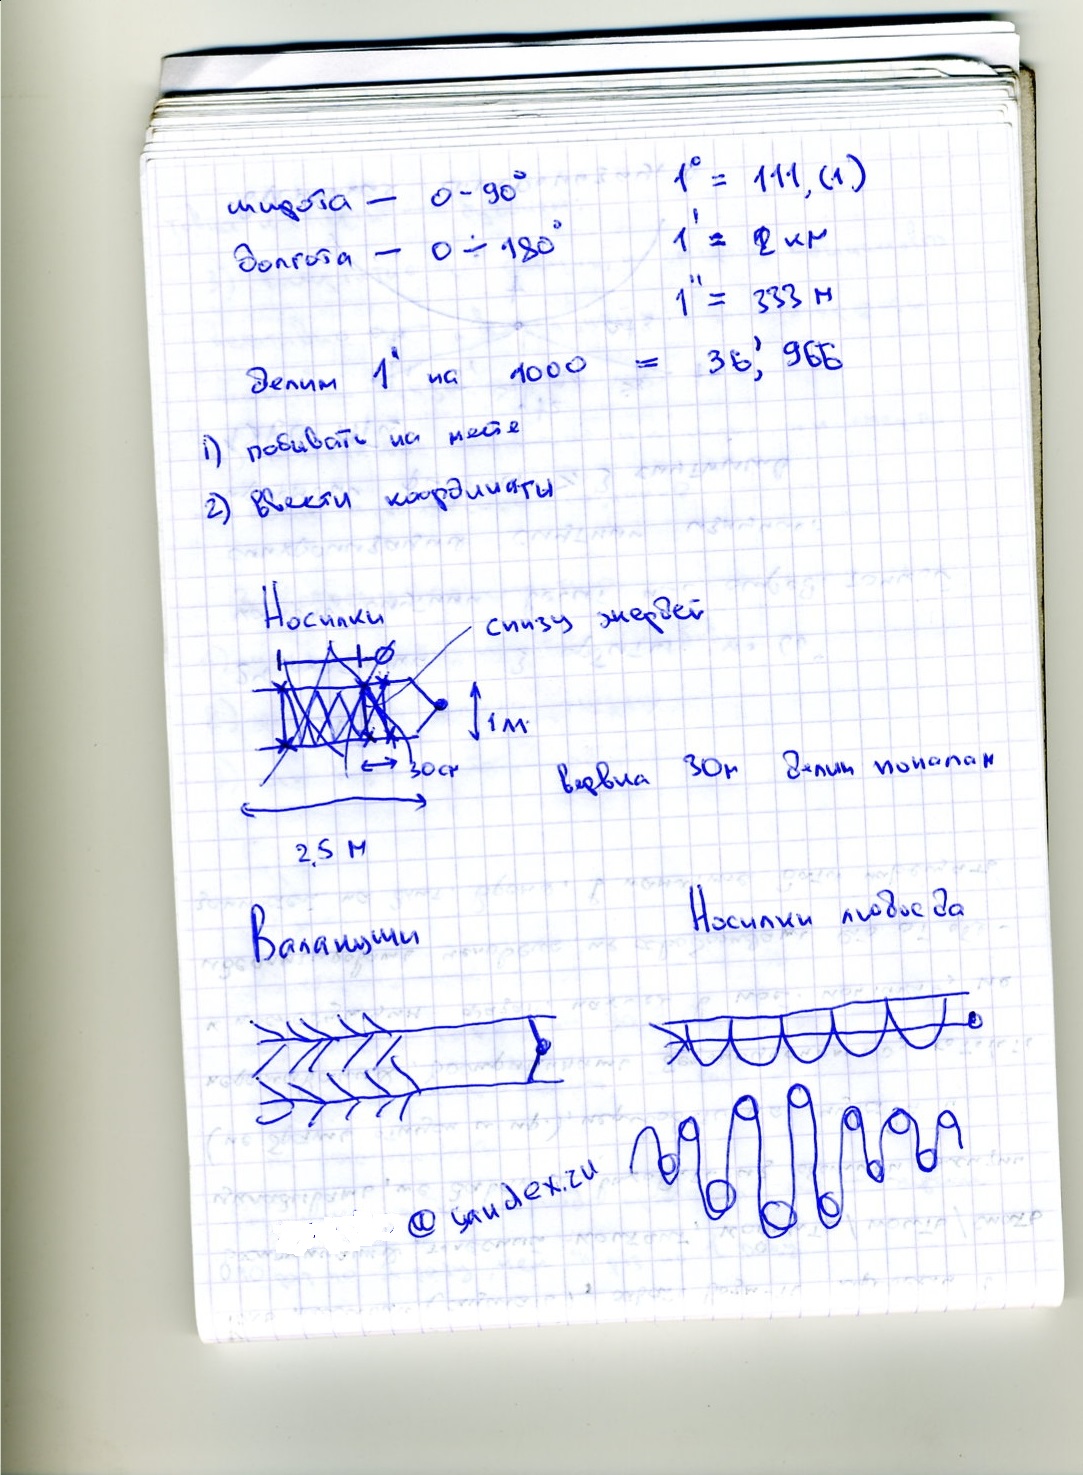 широта — 0-90° 1° = 111,(1)
долгота — 0÷180° 1' = 2 км
1" = 333 м
делим 1' на 1000 = 36', 966
1) побывать на месте
2) ввести координаты
Носилки
снизу жердей
1 м
30 см
верёвка 30м делим попалам
2,5 м
Волокуши
Носилки людоеда
@yandex.ru